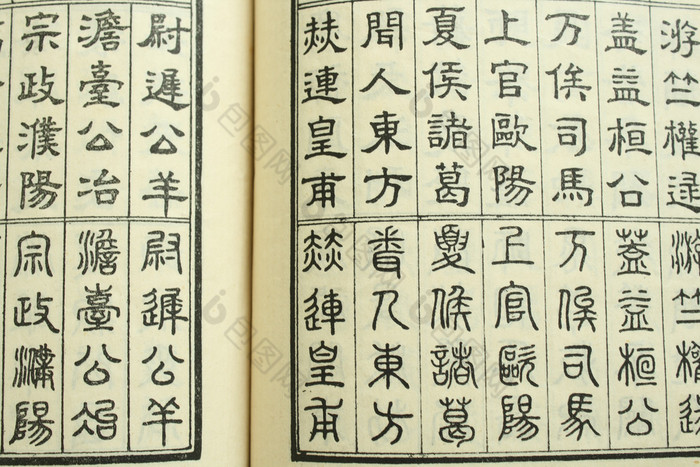 游竺權逯
盖益桓公
万俟司馬
上官歐陽
夏侯諸葛
聞人東方
赫連皇甫
游竺權逯
蓋益桓公
万俟司馬
上官歐陽
夏侯諸葛
聞人東方
赫連皇甫
尉遲公羊
澹臺公冶
宗政濮陽
尉遲公羊
澹臺公冶
宗政濮陽
包图网